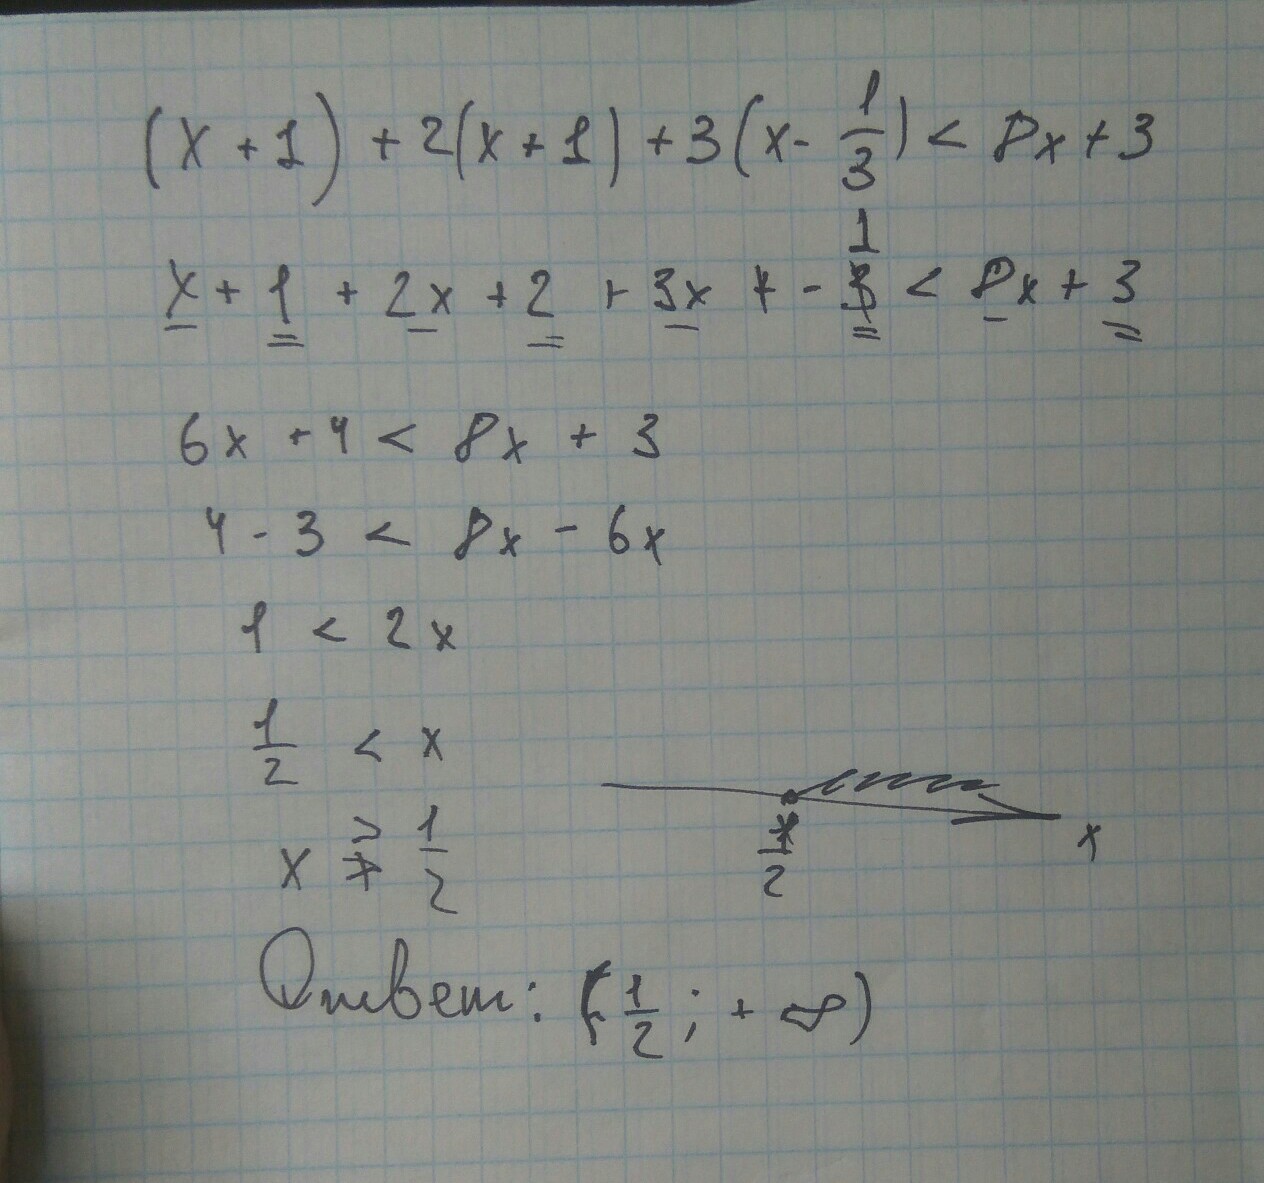 (x + 1) + 2(x + 1) + 3(x - 1/3) < 8x + 3
x + 1 + 2x + 2 + 3x - 1 < 8x + 3
6x + 4 < 8x + 3
4 - 3 < 8x - 6x
1 < 2x
1/2 < x
x > 1/2
1/2 x
Ответ: (1/2; + ∞)